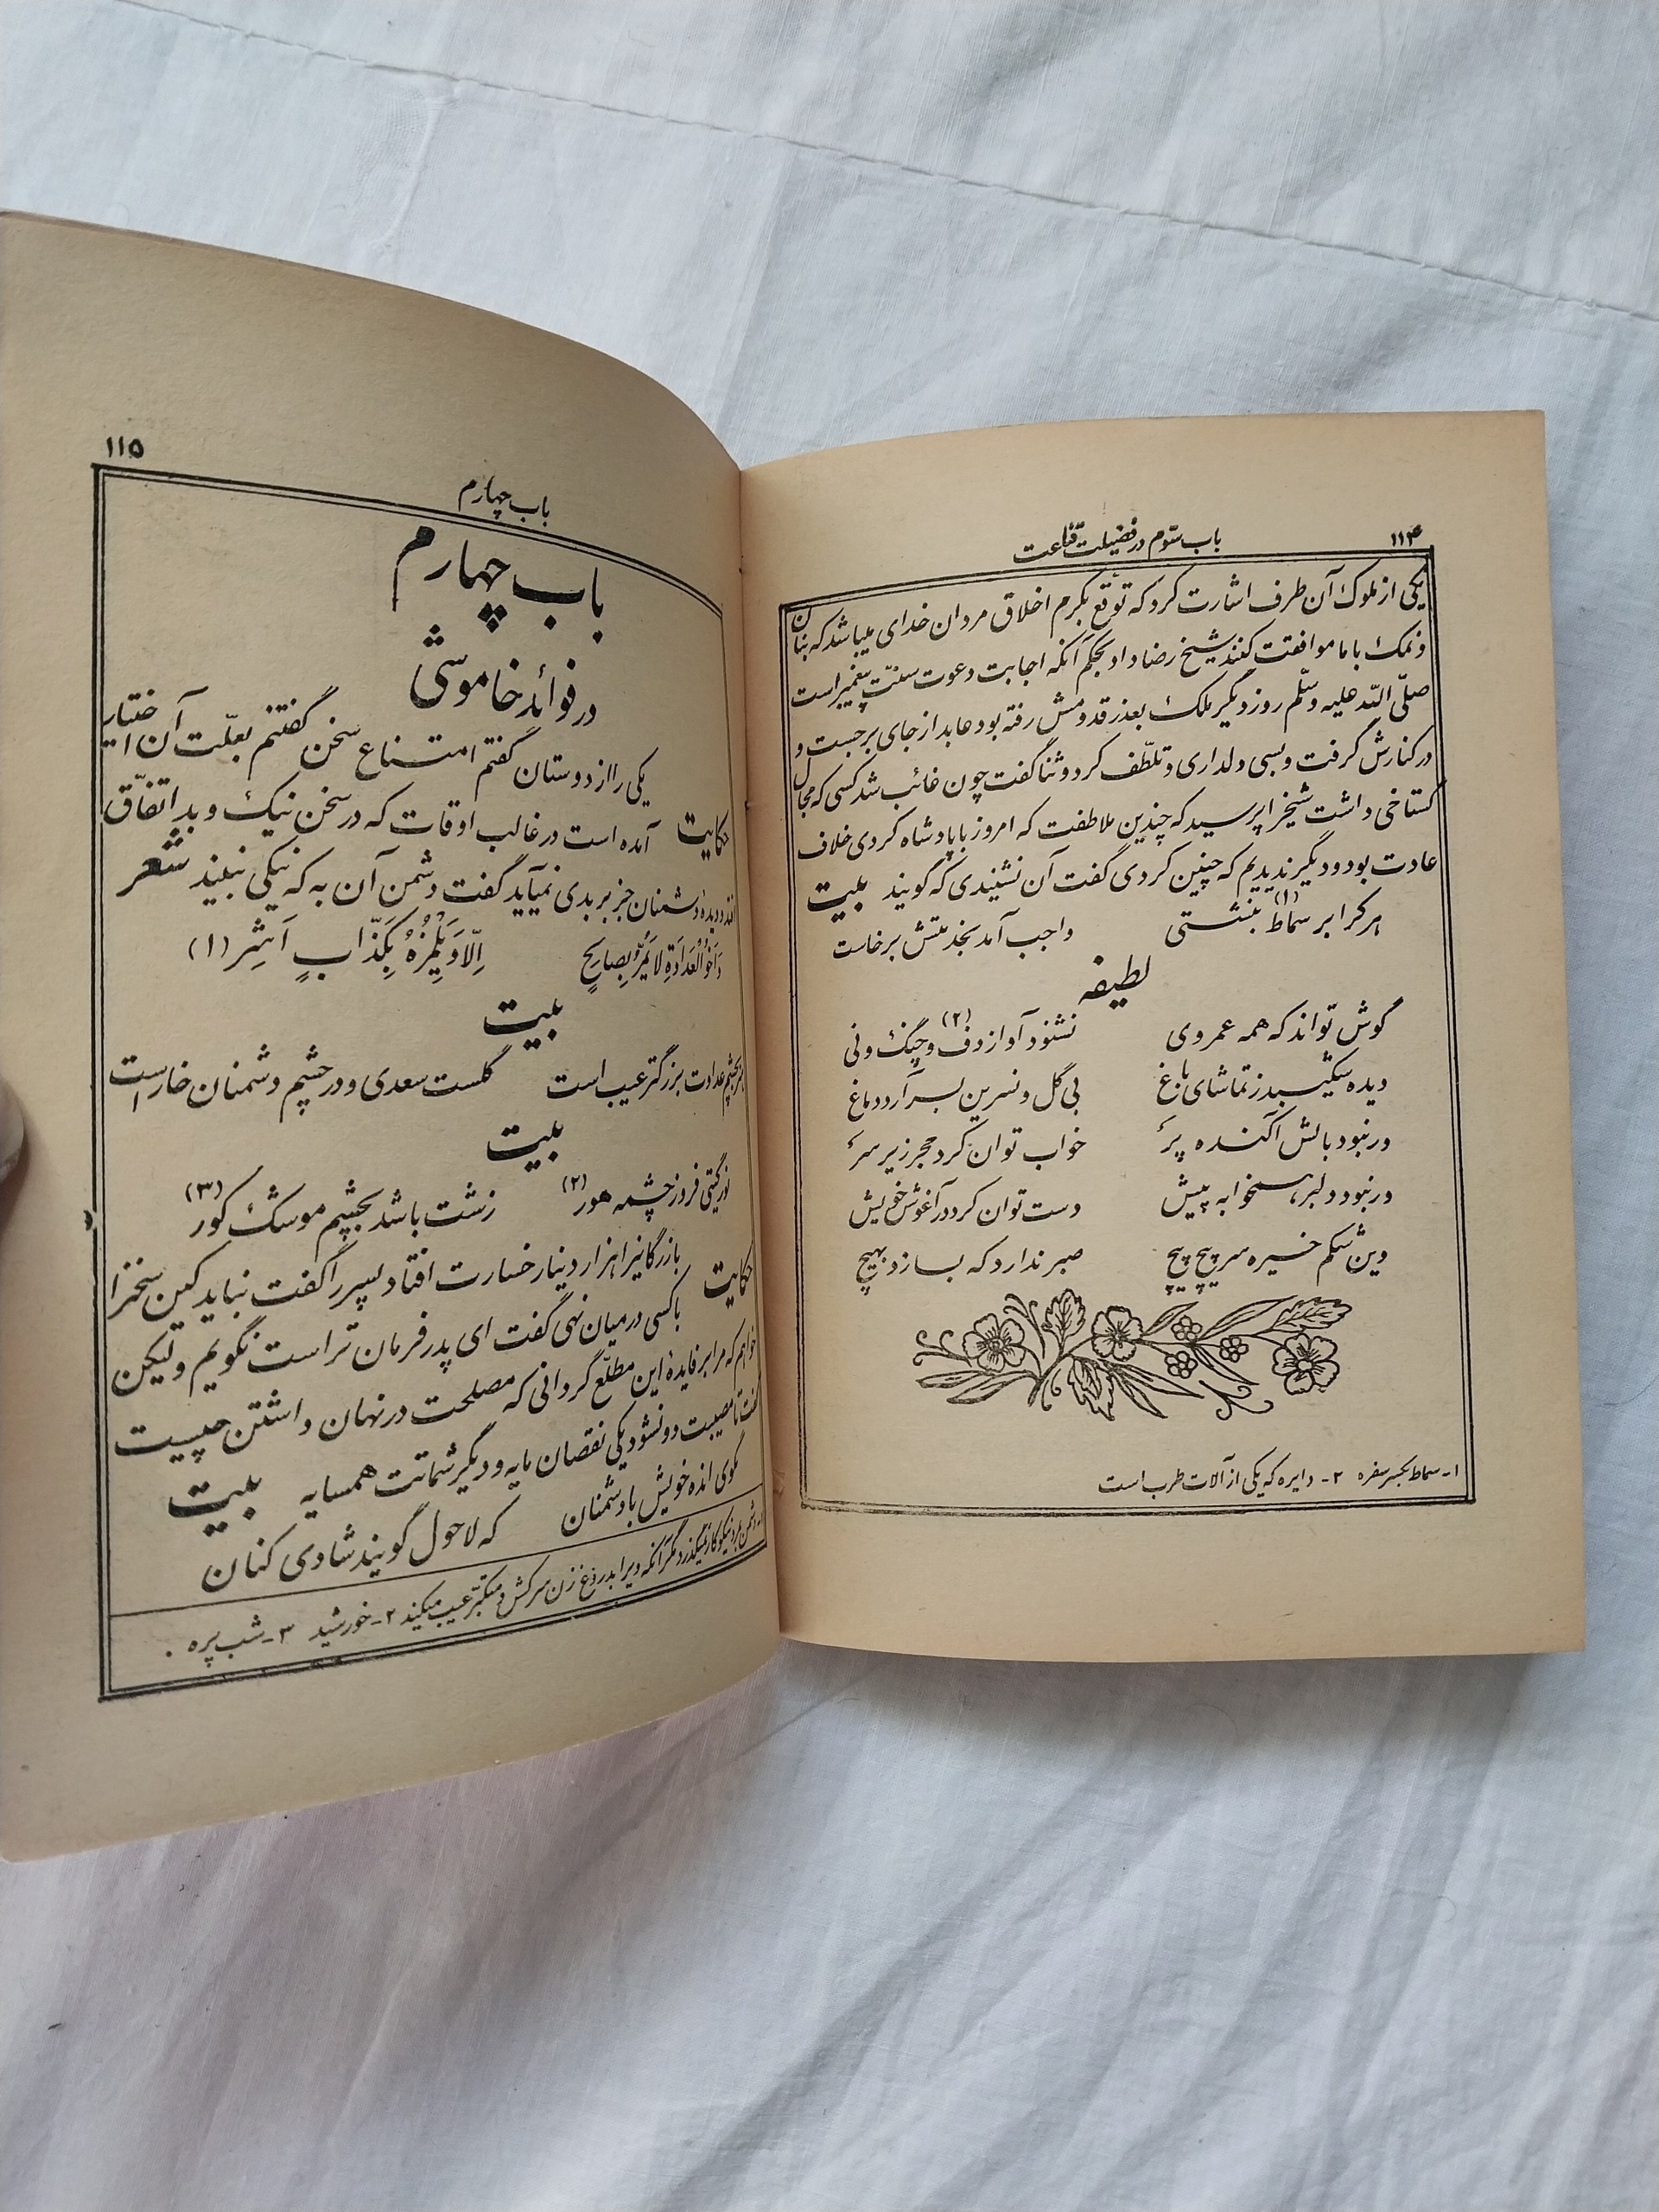 ۱۱۴
باب سوّم در فضیلت قناعت
یکی از ملوک آن طرف اشارت کرد که توقع بکرم اخلاق مردان خدای میباشد که بنان
و نمک با ما موافقت کنند شیخ رضا داد بحکم آنکه اجابت دعوت سنّت پیغمبر است
صلّی اللّه علیه و سلّم روز دیگر ملک بعذر قدومش رفته بود عابد از جای برجست و
در کنارش گرفت و بسی دلداری و تلطّف کرد و ثنا گفت چون غائب شد کسی که مجال
گستاخی داشت شیخ را پرسید که چندین ملاطفت که امروز با پادشاه کردی خلاف
عادت بود و دیگر ندیدیم که چنین کردی گفت آن نشنیدی که گویند بیت
هر کرا بر سماط (۱) بنشستی واجب آمد بخدمتش برخاست
لطیفه
گوش تواند که همه عمر وی نشنود آواز دف (۲) و چنگ و نی
دیده شکیبد ز تماشای باغ بی گل و نسرین بسر آرد دماغ
ور نبود بالش آکنده پر خواب توان کرد حجر زیر سر
ور نبود دلبر همخوابه پیش دست توان کرد در آغوش خویش
وین شکم خیره سر پیچ پیچ صبر ندارد که بسازد بهیچ
۱- سماط بکسر سفره ۲- دایره که یکی از آلات طرب است
۱۱۵
باب چهارم
باب چهارم
در فوائد خاموشی
حکایت یکی را از دوستان گفتم امتناع سخن گفتنم بعلّت آن اختیار
آمده است در غالب اوقات که در سخن نیک و بد اتفّاق
افتد و دیدهٔ دشمنان جز بر بدی نمیآید گفت دشمن آن به که نیکی نبیند شعر
وَاَخُوالْعَداوَةِ لا یَمُرُّ بِصالِحٍ اِلّا وَ یَلْمِزُهُ بِکَذّابٍ اَشِرِ (۱)
بیت
هنر بچشم عداوت بزرگتر عیب است گلست سعدی و در چشم دشمنان خار است
بیت
نور گیتی فروز چشمه هور (۲) زشت باشد بچشم موشک کور (۳)
حکایت بازرگانیرا هزار دینار خسارت افتاد پسر را گفت نباید کین سخن را
با کسی در میان نهی گفت ای پدر فرمان تراست نگویم ولیکن
خواهم که مرا بر فایدهٔ این مطلّع گردانی که مصلحت در نهان داشتن چیست
گفت تا مصیبت دو نشود یکی نقصان مایه و دیگر شماتت همسایه بیت
مگوی انده خویش با دشمنان که لاحول گویند شادی کنان
۱- دشمن بمرد نیکوکار نمیگذرد مگر آنکه ویرا بدروغ زن سرکش و متکبّر عیب میکند ۲- خورشید ۳- شب پره .